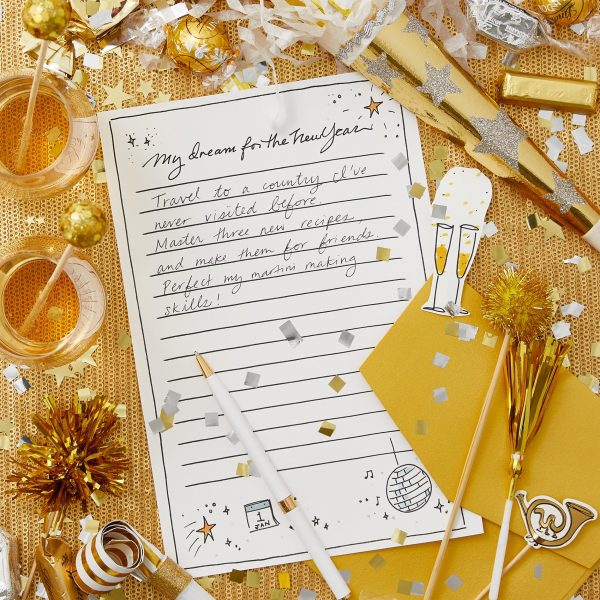 My dream for the New Year
Travel to a country I've
never visited before.
Master three new recipes
and make them for friends.
Perfect my martini making
skills!
1
JAN